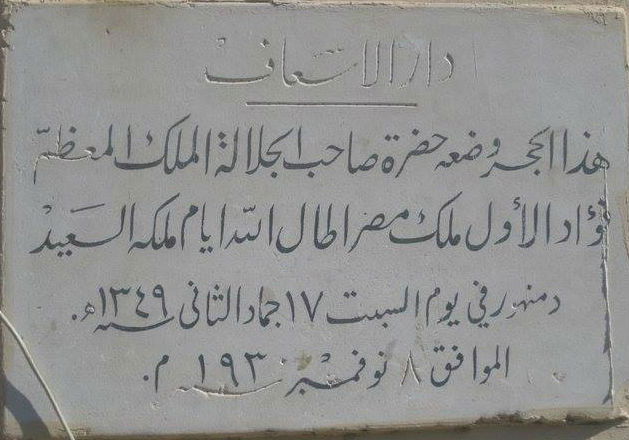 دار الاسعاف
هذا الحجر وضعه حضرة صاحب الجلالة الملك المعظم
فؤاد الأول ملك مصر اطال الله ايام ملكه السعيد
دمنهور في يوم السبت ١٧ جماد الثانى سنة ١٣٤٩ هـ.
الموافق ٨ نوفمبر سنة ١٩٣٠ م.